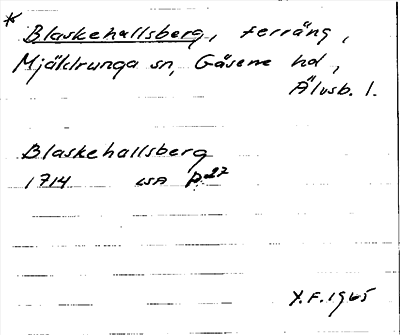 * Blaskehallsberg, terräng,
Mjäldrunga sn, Gäsene hd,
Älvsb. l.
Blaskehallsberg
1714 LSA P 22
Y.F. 1965